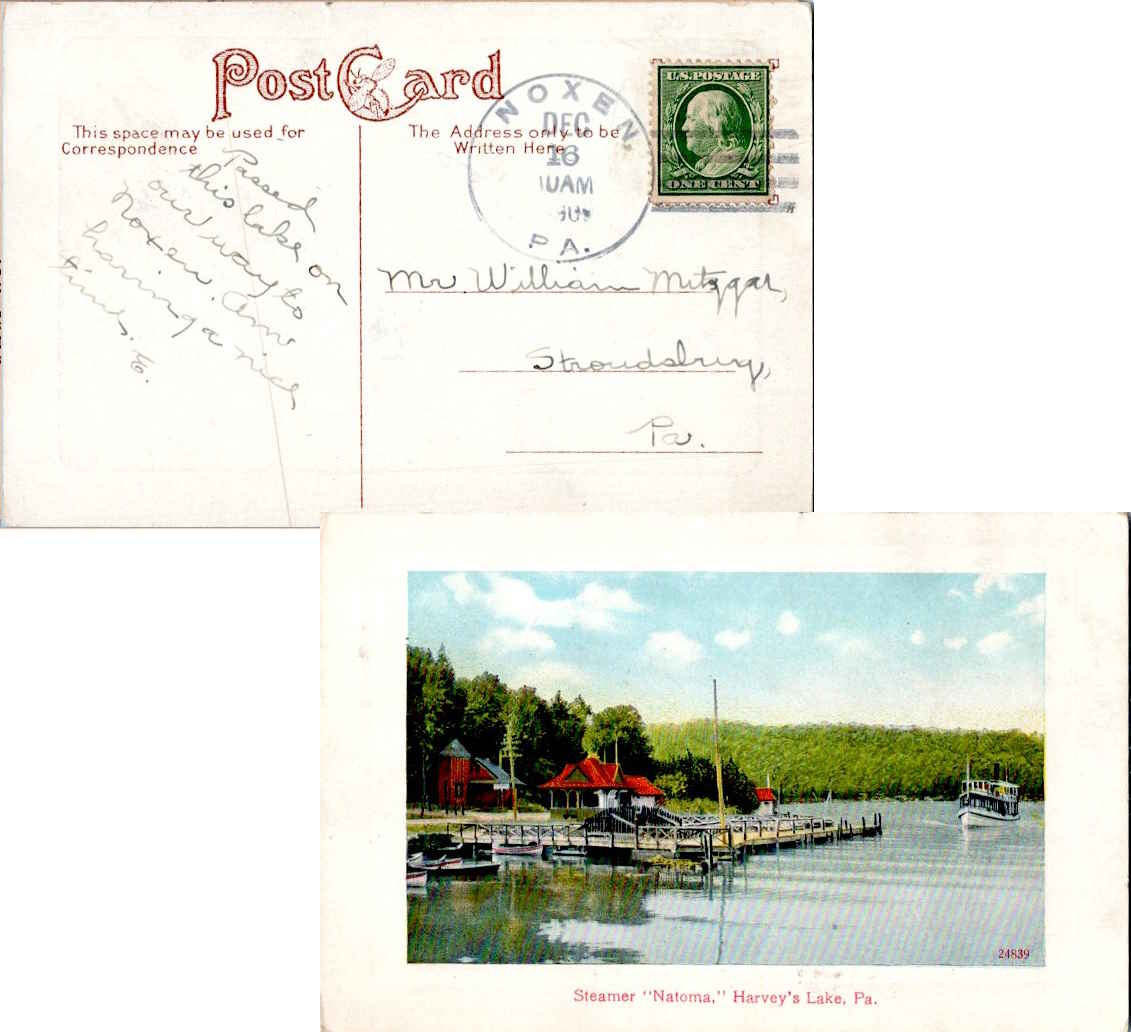 Post Card
This space may be used for
Correspondence
The Address only to be
Written Here
NOXEN,
DEC
16
10AM
PA.
U.S. POSTAGE
ONE CENT
Passed
this lake on
our way to
Noxen. Am
having a nice
time. E.
Mr. William Metzgar,
Stroudsburg,
Pa.
24839
Steamer "Natoma," Harvey's Lake, Pa.